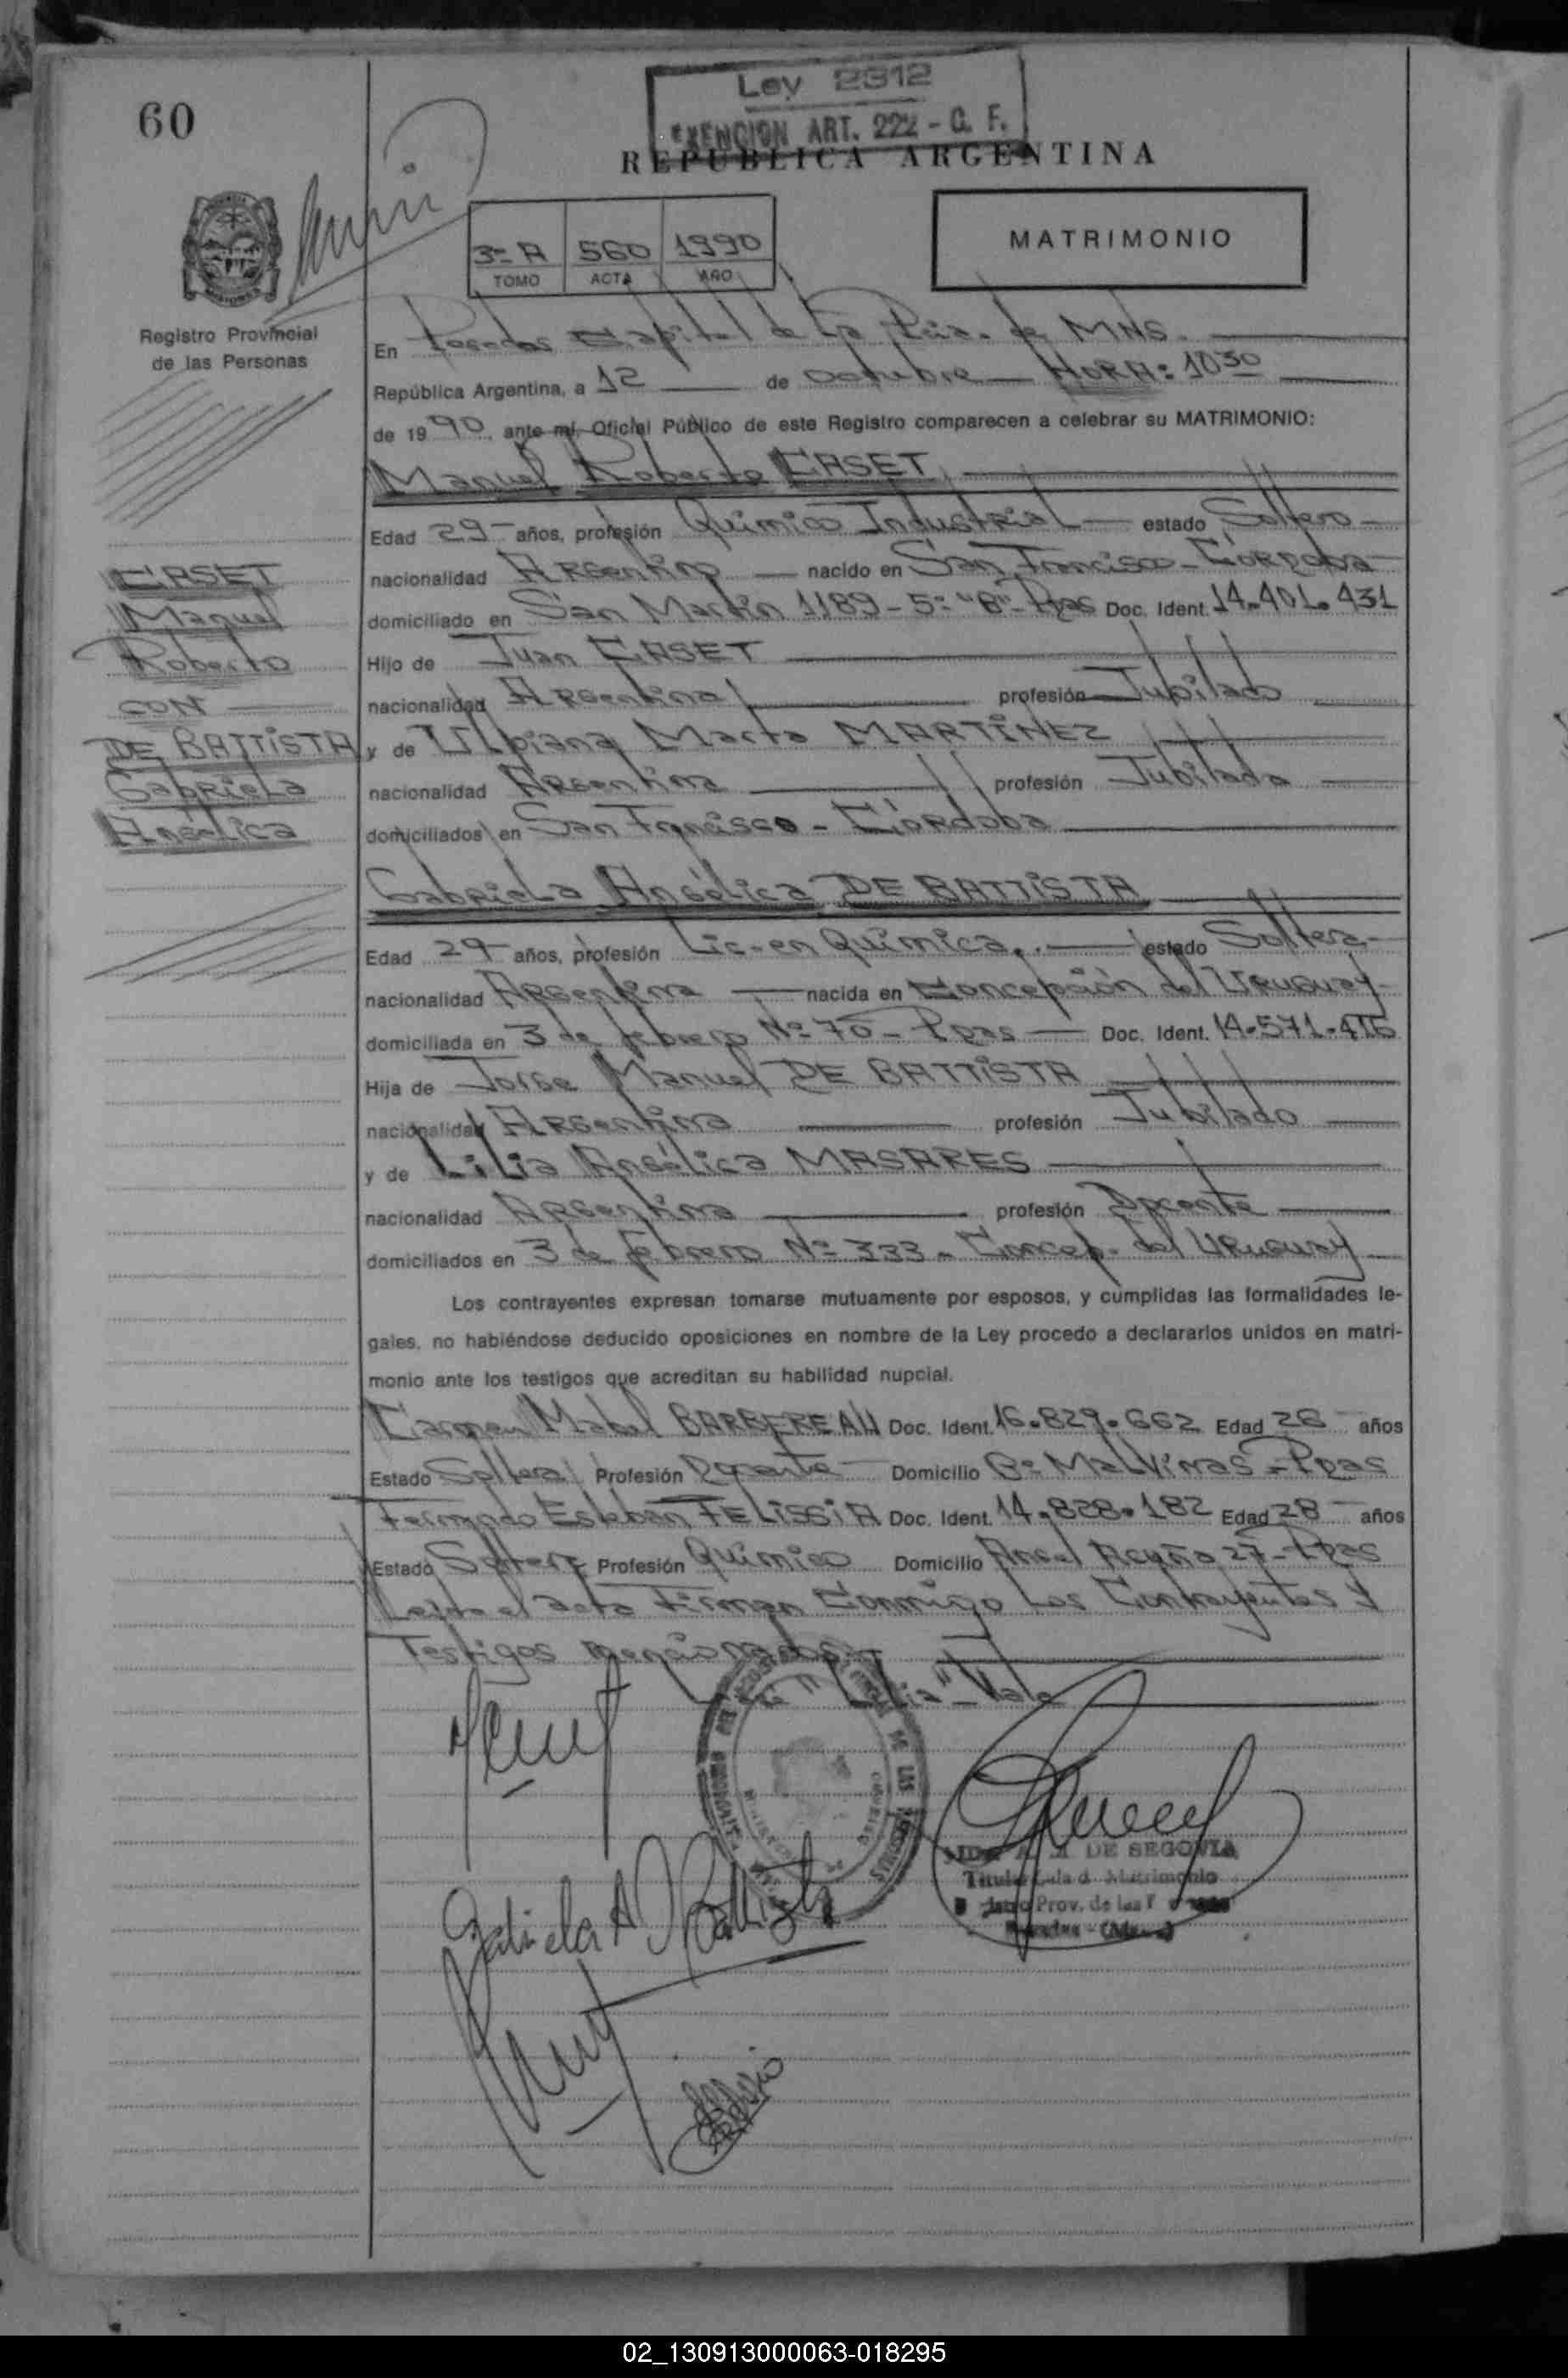 60
Ley 2312
EXENCION ART. 222 - C. F.
REPUBLICA ARGENTINA
3º A 560 1990
TOMO ACTA AÑO
MATRIMONIO
Registro Provincial
de las Personas
En Posadas Capital de La Pcia. de MNS.
República Argentina, a 12 de octubre HORA: 10 30
de 1990, ante mí, Oficial Público de este Registro comparecen a celebrar su MATRIMONIO:
Manuel Roberto CASET
Edad 29 años, profesión Químico Industrial estado Soltero
nacionalidad Argentina nacido en San Francisco - Córdoba
domiciliado en San Martín 1189 - 5º "B" - Pdas Doc. Ident. 14.401.431
Hijo de Juan CASET
nacionalidad Argentina profesión Jubilado
y de Ulpiana Marta MARTINEZ
nacionalidad Argentina profesión Jubilada
domiciliados en San Francisco - Córdoba
CASET
Manuel
Roberto
CON
DE BATTISTA
Gabriela
Angélica
Gabriela Angélica DE BATTISTA
Edad 29 años, profesión Lic. en Química. estado Soltera
nacionalidad Argentina nacida en Concepción del Uruguay
domiciliada en 3 de febrero Nº 70 - Pdas Doc. Ident. 14.571.416
Hija de Jorge Manuel DE BATTISTA
nacionalidad Argentina profesión Jubilado
y de Lilia Angélica MASARES
nacionalidad Argentina profesión Docente
domiciliados en 3 de febrero Nº 333 - Concep. del Uruguay
Los contrayentes expresan tomarse mutuamente por esposos, y cumplidas las formalidades le-
gales, no habiéndose deducido oposiciones en nombre de la Ley procedo a declararlos unidos en matri-
monio ante los testigos que acreditan su habilidad nupcial.
Carmen Mabel BARBEREAU Doc. Ident. 16.829.662 Edad 26 años
Estado Soltera Profesión Docente Domicilio Bº Malvinas - Pdas
Fernando Esteban FELISSIA Doc. Ident. 14.828.182 Edad 28 años
Estado Soltero Profesión Químico Domicilio Angel Acuña 27 - Pdas
Leída el acta Firman Conmigo Los Contrayentes y
Testigos mencionados.
"Lilia" Vale
Gabriela A De Battista
DE SEGOVIA
Titular Sala d. Matrimonio
Prov. de las
02_130913000063-018295